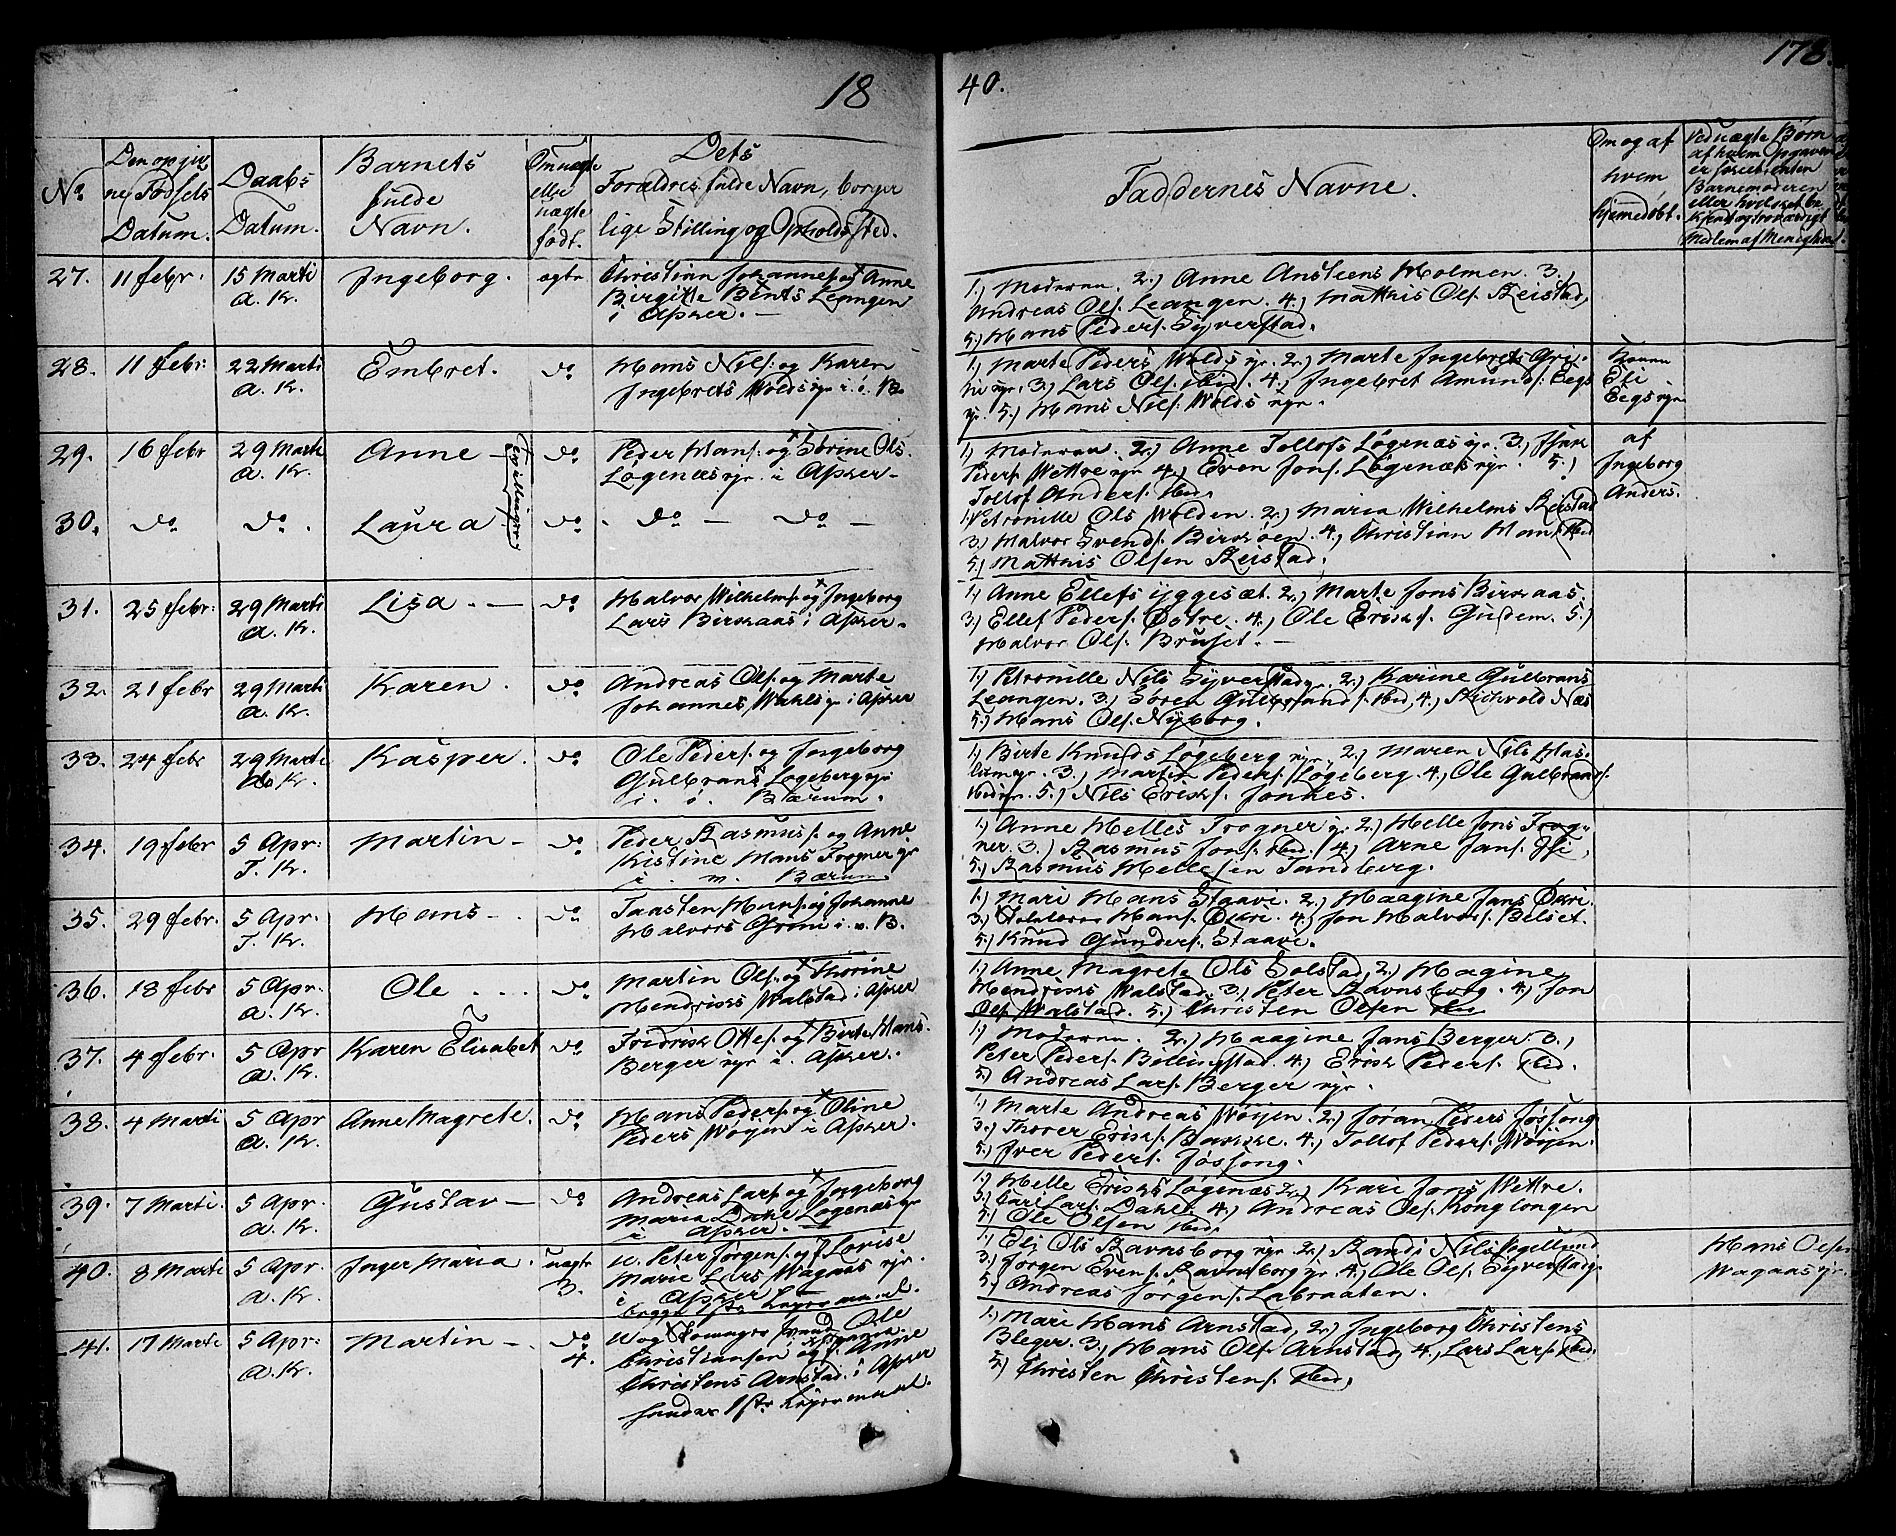 18
40.
178.
No
Den opgiv
ne Fødsels
Datum.
Daabs
Datum.
Barnets
fulde
Navn.
Om ægte
eller
uægte
født.
Dets
Forældres fulde Navn, borger
lige Stilling og Opholdssted.
Faddernes Navne.
Om og af
hvem
hjemmedøbt.
Ved uægte Børn
af hvem Opgaven
er skeet, enten
Barnemoderen
eller hvilket be
kjendt og troværdigt
Medlem af Menighed.
27. 11 febr. 15 Marti Ingeborg. ægte Christian Johannes. og Anne
a. K. Birgitte Bents Leangen
i Asker. —
1.) Moderen. 2.) Anne Ansteens Holmen. 3.)
Andreas Ols. Leangen. 4.) Mathis Ols. Reistad,
5.) Hans Peders. Syverstad.
28. 11 febr: 22 Marti Embret. do Hans Nils. og Karen
a. K. Ingebrets Wolds ejr i. v. B.
1.) Marte Peders Wolds ejr. 2.) Marte Ingebrets Gri-
ni ejr. 3.) Lars Ols. ibid. 4.) Ingebret Amunds. Eegs
ejr. 5.) Hans Nils. Wolds ejr.
Konen
Eli
Eegs ejr
29. 16 febr 29 Marti Anne — do Peder Hans. og Sørine Ols.
a. K. Løgenæs ejr. i Asker —
(Tvillinger)
1.) Moderen. 2.) Anne Tollofs Løgenæs ejr. 3.) Isak
Peders. Wettre ejr 4.) Even Jons. Løgenæs ejr. 5.)
Tollof Anders. ibid.
af
Ingeborg
Anders.
30. do do. Laura. do. do — do —
1.) Petronille Ols Wolden. 2.) Maria Wilhelms Reistad
3.) Halvor Svends. Bersøen. 4.) Christian Hans. ibid
5.) Mathis Olsen Reistad.
31. 25 febr: 29 Marti Lisa. — do Halvor Wilhelms. og Ingeborg
a. K. Lars Birkaas i Asker.
1.) Anne Ellefs Yggesæt. 2.) Marte Jons Birkaas.
3.) Ellef Peders. Østre. 4.) Ole Eriks. Gudem. 5.)
Halvor Ols. Bruset. —
32. 21 febr 29 Marti Karen. do Andreas Ols. og Marte
a. K. Johannes Wahls ejr i Asker
1.) Petronille Nils Syverstad ejr. 2.) Karine Gulbrans
Leangen. 3.) Søren Gulbrands. ibid, 4.) Richvold Næs
5.) Hans Ols. Nyborg.
33. 24 febr 29 Marti Kasper. do Ole Peders. og Ingeborg
a. K. Gulbrans Løgeberg ejr
i. ø. Bærum.
1.) Birte Knuds Løgeberg ejr. 2.) Maren Nils Has-
lum ejr. 3.) Martin Peders. Løgeberg. 4.) Ole Gulbrands.
ibid ejr. 5.) Nils Eriks. Jonkes.
34. 19 febr 5 Apr: Martin — do Peder Rasmus. og Anne
T. K. Kistine Hans Frogner ejr
i. v. Bærum.
1.) Anne Helles Frogner ejr 2.) Helle Jons Frog-
ner. 3.) Rasmus Jons. ibid. 4.) Arne Jans. Isi,
5.) Rasmus Hellesen Tandberg.
35. 29 febr. 5 Apr. Hans — do Taasten Hans. og Johanne
T. K. Halvors Grini i. v. B.
1.) Mari Hans Staavi. 2.) Haagine Jans Økri.
3.) Hans. Økri. 4.) Jon Halvors. Belset.
5.) Knud Gunders. Staavi.
36. 18 febr 5 Apr. Ole ... do Martin Ols. og Thorine
a. K. Hendriks Walstad i Asker
1.) Anne Magrete Ols Solstad, 2.) Haagine
Hendriks Walstad. 3.) Peter Ravnsborg. 4.) Jon
Ols. Walstad. 5.) Christen Olsen ibid
37. 4 febr. 5 Apr Karen Elisabet do Fredrik Ottes. og Birte Hans.
a. K. Berger ejr i. Asker.
1.) Moderen. 2.) Haagine Jans Berger. 3.)
Peter Peders. Billingstad. 4.) Erik Peders. ibid.
5.) Andreas Lars. Berger ejr.
38. 4 Marti 5 Apr Anne Magrete. do Hans Peders. og Oline
a. K. Peders Wøyen i Asker.
1.) Marte Andreas Wøyen. 2.) Jøran Peders Jøssong
3.) Thorer Eriks. Bakke. 4.) Tollof Peders. Wøyen.
5.) Iver Peders. Jøssong.
39. 7 Marti. 5 Apr. Gustav — do Andreas Lars. og Ingeborg
a. K. Maria Dahl Løgenæs ejr
i Asker. —
1.) Helle Eriks Løgenæs 2.) Kari Jons Wettre.
3.) Carl Lars. Dahl. 4.) Andreas Ols. Konglongen
5.) Ole Olsen ibid.
40. 8 Marti 5 Apr. Inger Maria. uægte U. Peter Jørgens. og f. Lovise
a. K. 3. Marie Lars Wagaas ejr.
i Asker —
begge 1ste Leyermaal.
1.) Eli Ols Ravnsborg ejr. 2.) Randi Nils
3.) Jørgen Evens. Ravnsborg ejr. 4.) Ole Ols. Syverstad ejr.
5.) Andreas Jørgens. Labraaten.
Hans Olsen
Wagaas ejr.
41. 17 Marti 5 Apr: Martin — do Ole
a. K. 4. Christiansen og f. Anne
Christens Arnstad. i Asker
1ste Leyermaal.
1.) Mari Hans Arnstad, 2.) Ingeborg Christens
Bleger. 3.) Hans Ols. Arnstad, 4.) Lars Lars. ibid.
5.) Christen Christens. ibid.